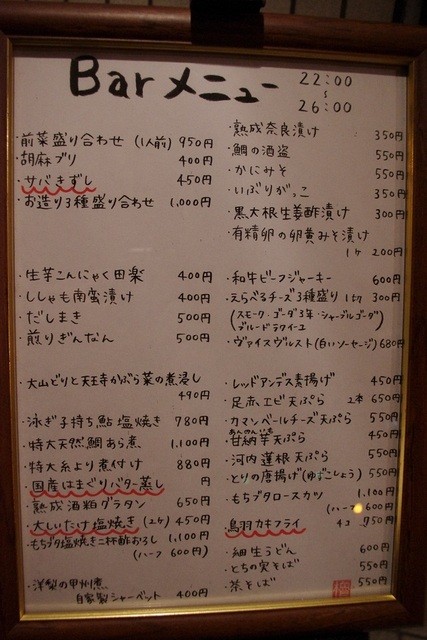 Barメニュー
22:00
~
26:00
・前菜盛り合わせ (1人前) 950円
・胡麻ブリ 400円
・サバきずし 450円
・お造り3種盛り合わせ 1,000円
・生芋こんにゃく田楽 400円
・ししゃも南蛮漬け 400円
・だしまき 500円
・煎りぎんなん 500円
・大山どりと天王寺かぶら菜の煮浸し
490円
・泳ぎ子持ち鮎塩焼き 780円
・特大天然鯛あら煮 1,100円
・特大糸より煮付け 880円
・国産はまぐりバター蒸し 円
・熟成酒粕グラタン 650円
・大しいたけ塩焼き (2ヶ) 450円
・もちブタ塩焼き二杯酢おろし 1,100円
(ハーフ 600円)
・洋梨の甲州煮
自家製シャーベット 400円
・熟成奈良漬け 350円
・鯛の酒盗 550円
・かにみそ 550円
・いぶりがっこ 350円
・黒大根生姜酢漬け 300円
・有精卵の卵黄みそ漬け
1ヶ 200円
・和牛ビーフジャーキー 600円
・えらべるチーズ3種盛り 1切 300円
(スモーク・ゴーダ3年・シャープルゴーダ
ブルードラクイユ)
・ヴァイスヴルスト(白いソーセージ) 680円
・レッドアンデス素揚げ 450円
・足赤エビ天ぷら 2本 650円
・カマンベールチーズ天ぷら 550円
・甘納芋天ぷら 450円
・河内蓮根天ぷら 550円
・とりの唐揚げ(ゆずこしょう) 550円
・もちブタロースカツ 1,100円
(ハーフ 600円
・鳥羽カキフライ 4コ 750円
・細生うどん 600円
・とちの実そば 550円
・茶そば 550円